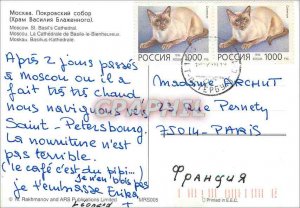 Москва. Покровский собор
(Храм Василия Блаженного)
Moscow. St. Basil's Cathedral
Moscou. La Cathédrale de Basile-le-Bienheureux
Moskau. Basilius-Kathedrale
РОССИЯ 1000
РОССИЯ 1000
Après 2 jours passés
à Moscou où il a
fait très très chaud
nous naviguons vers
Saint-Petersbourg.
La nourriture n'est
pas terrible.
(le café c'est du pipi...)
je n'en bois pas
je t'embrasse Erika
Madame
23 rue Pernety
75014-PARIS
Франция
© N. Rakhmanov and ARS Publications Limited
MPS005
Printed in E.E.C.